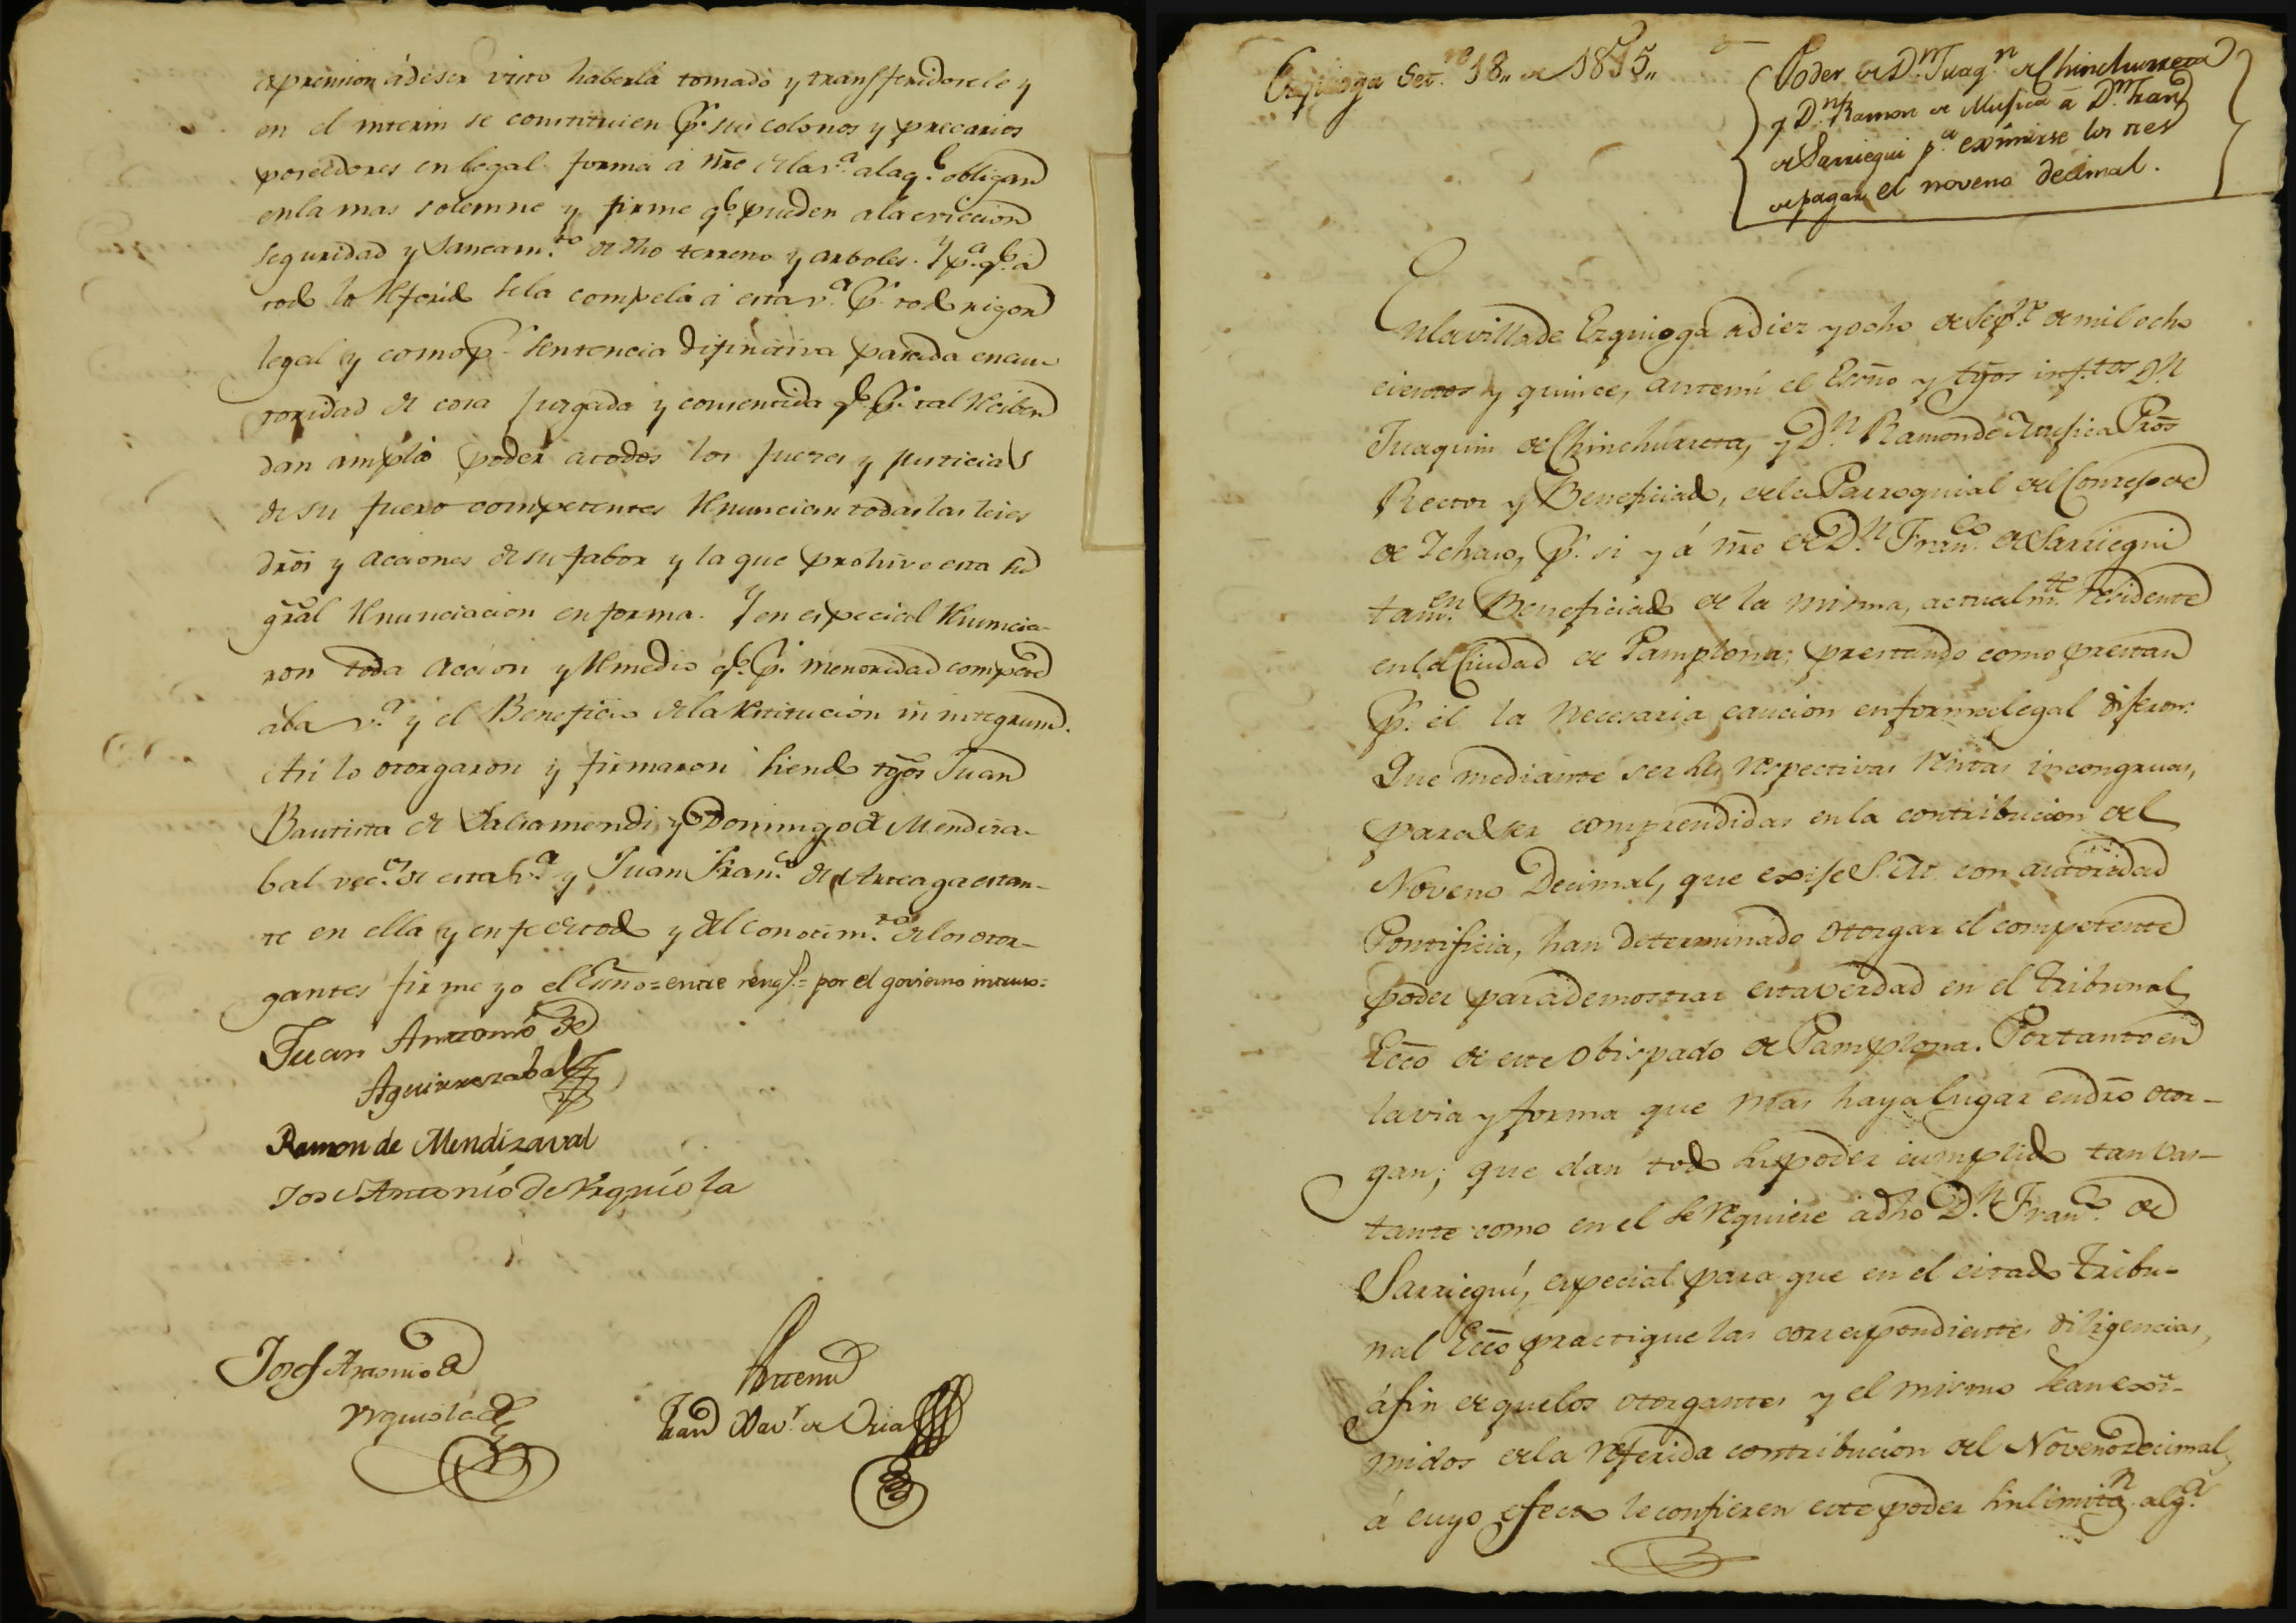 expression á de ser visto haberla tomado y transfferidosele y
en el interin se constituien p.r sus colonos y precarios
poseedores en legal forma á nre de la v.a a la q.e obligan
en la mas solemne y firme q.e pueden a la eviccion
seguridad y saneam.to de dho terreno y arboles. Y p.a q.e a
todo lo referido se la compela á esta v.a p.r todo rigor
legal y como p.r sentencia difinitiva pasada en au-
toridad de cosa jurgada y consentida q.e p.r tal reciben
dan amplio poder a todos los jueces y justicias
de su fuero competentes renuncian todas las leies
dros y acciones de su fabor y la que prohive esta su
gral renunciacion en forma. Y en especial renuncia-
ron toda accion y remedio q.e p.r menoridad compete
a la v.a y el Beneficio de la restitucion in integrum.
Asi lo otorgaron y firmaron siendo tgos Juan
Bautista de Salsamendi y Domingo de Mendiza-
bal vec.s de esta v.a y Juan Fran.co de Arteaga estan-
te en ella y en fe de todo y del conocim.to de los otor-
gantes firme yo el Esno = entre reng.s = por el govierno intruso =
Juan Antonio de
Aguirrezabal
Ramon de Mendizaval
Jose Antonio de Urquiola
Josef Antonio de
Urquiola
Antemi
Fran Xav.r de Oria
Ezquioga Set.re 18,, de 1815,,
Poder de D.n Juaq.n de Chinchurreta
y D.n Ramon de Mugica a D.n Fran
de Sarriegui p.a eximirse los tres
de pagar el noveno decimal.
En la villa de Ezquioga a diez y ocho de Sep.re de mil ocho
cientos y quince, ante mi el Esno y tgos inf.tos D.n
Juaquin de Chinchurreta, y D.n Ramon de Mugica Pros
Rector y Beneficiado, de la Parroquial del Concejo de
de Ichaso, p.r si y á nre de D.n Fran.co de Sarriegui
tam.en Beneficiado de la misma, actualm.te residente
en la Ciudad de Pamplona; prestando como prestan
p.r él la necesaria caucion en forma legal dijeron:
Que mediante ser sus respectivas rentas incongruas,
para ser comprendidas en la contribucion del
Noveno Decimal, que exije S. M. con autoridad
Pontificia, han determinado otorgar el competente
poder para demostrar esta verdad en el tribunal
Ecco de este Obispado de Pamplona. Por tanto en
la via y forma que mas haya lugar en dro otor-
gan; que dan todo su poder cumplido tan bas-
tante como en el se requiere a dho D.n Fran.co de
Sarriegui, especial para que en el citado tribu-
nal Ecco practique las correspondientes diligencias,
á fin de que los otorgantes y el mismo sean exi-
midos de la referida contribucion del Noveno decimal,
á cuyo efecto le confieren este poder sin limita.n alg.a